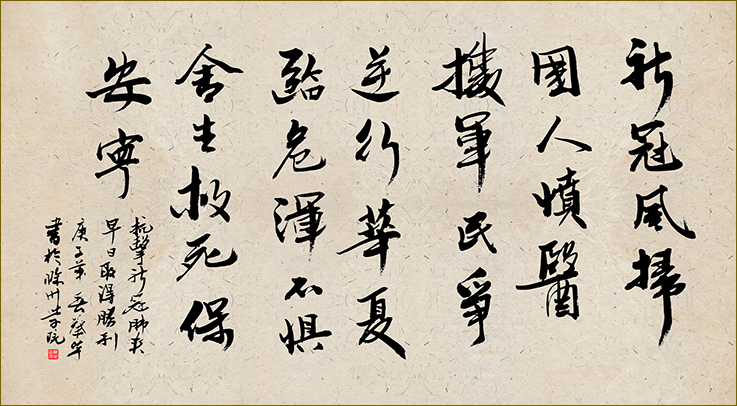 新冠風掃
國人憤醫
護軍民爭
逆行華夏
臨危渾不惧
舍生救死保
安寧
抗擊新冠肺炎
早日取得勝利
庚子
書於滁州學院